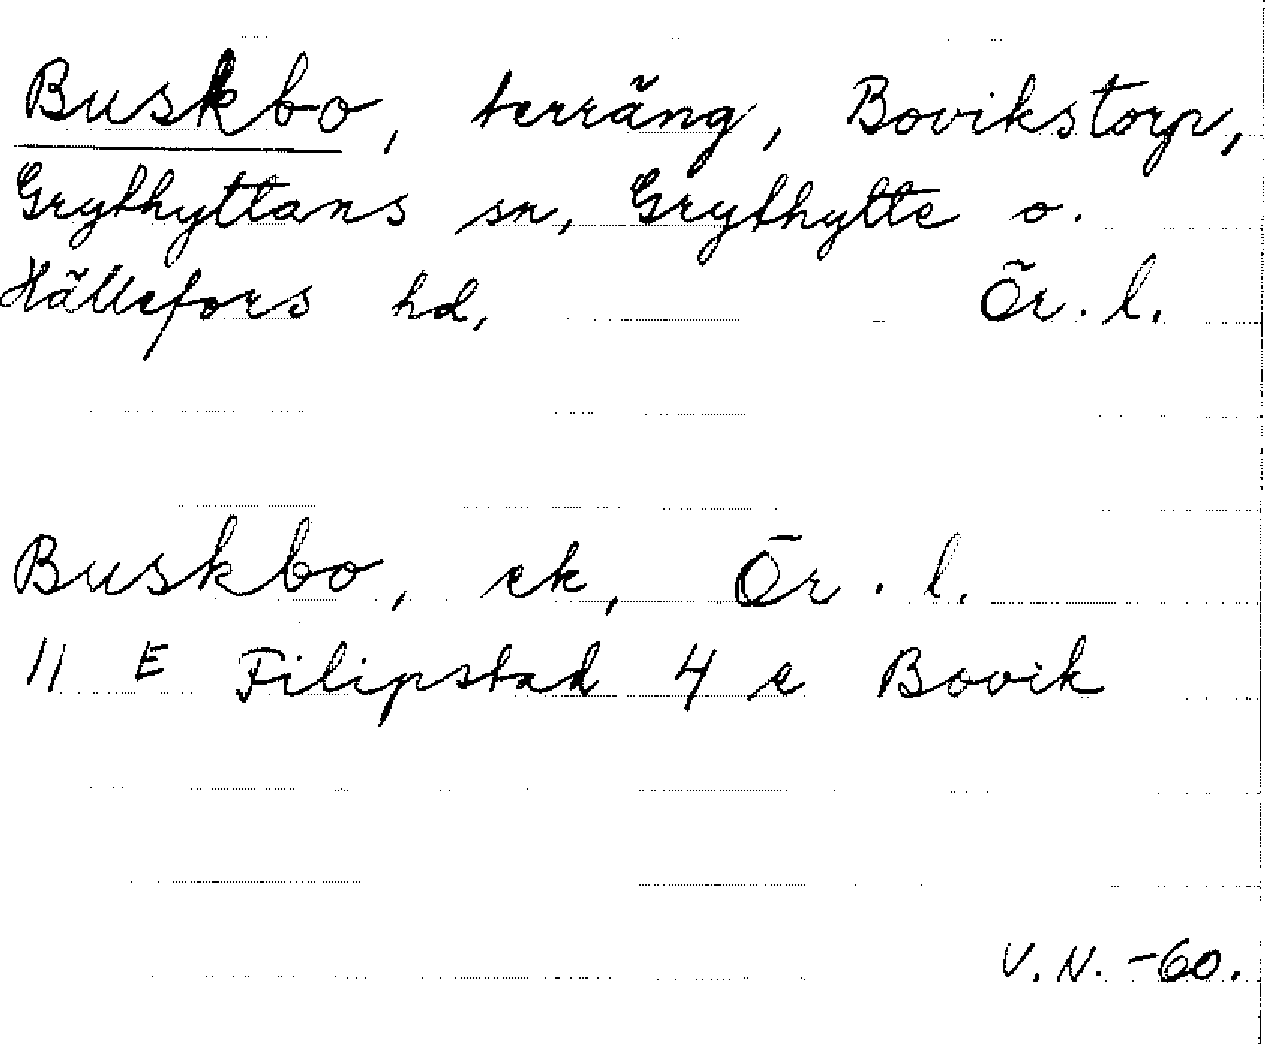 Buskbo, terräng, Bovikstorp,
Grythyttans sn, Grythytte o.
Hällefors hd, Ör. l.
Buskbo, ek, Ör. l.
11 E Filipstad 4 e Bovik
V. N. -60.